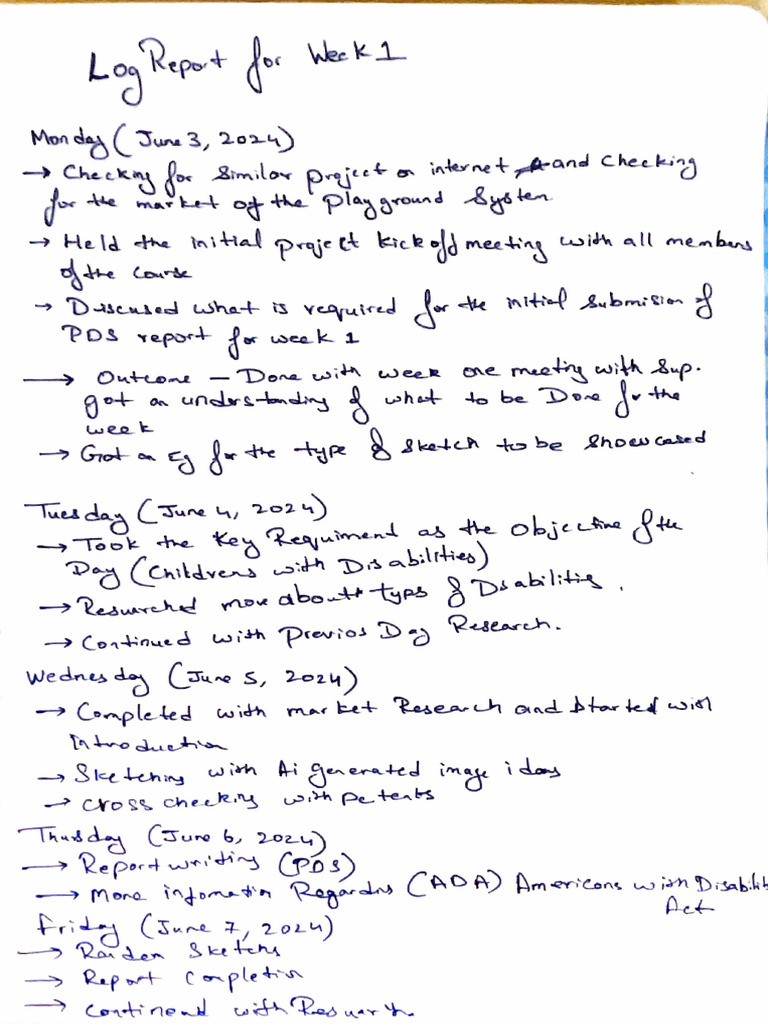 Log Report for Week 1
Monday (June 3, 2024)
→ Checking for similar project on internet and checking
for the market of the playground System
→ Held the initial project kick off meeting with all members
of the course
→ Discused what is required for the initial submision of
PDS report for week 1
→ Outcome - Done with week one meeting with Sup.
got an understanding of what to be Done for the
week
→ Got an Eg for the type of sketch to be showcased
Tuesday (June 4, 2024)
→ Took the Key Requiment as the objective of the
Day (Childrens with Disabilities)
→ Researched more about typs of Disabilities.
→ Continued with Previos Day Research.
Wednesday (June 5, 2024)
→ Completed with market Research and started with
Introduction
→ Sketching with Ai generated image ideas
→ cross checking with patents
Thusday (June 6, 2024)
→ Report writing (PDS)
→ More infomation Regarding (ADA) Americans with Disability
Act
Friday (June 7, 2024)
→ Sketchs
→ Report Completion
→ continued with Research.